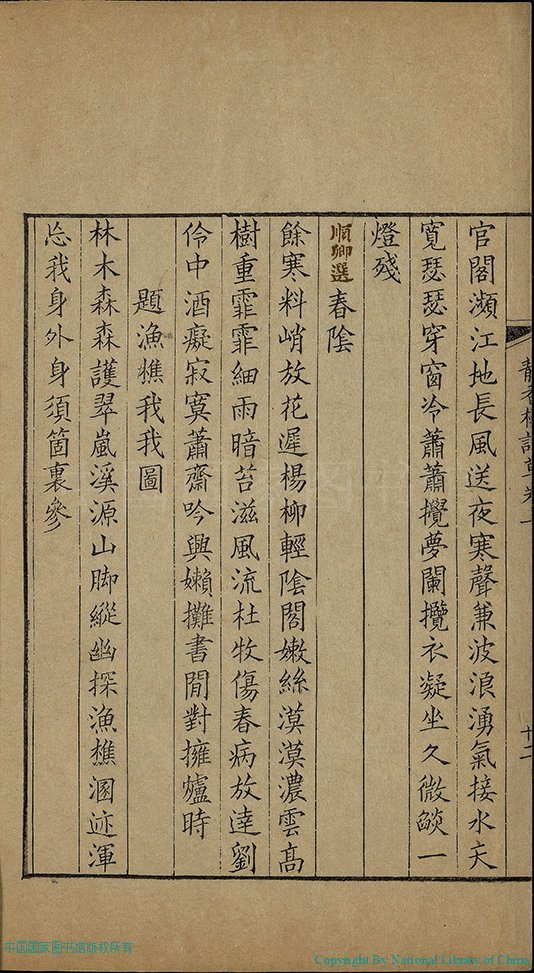 官閣瀕江地長風送夜寒聲兼波浪湧氣接水天
寬瑟瑟穿窗冷蕭蕭攪夢闌攬衣凝坐久微燄一
燈殘
順卿選 春陰
餘寒料峭放花遲楊柳輕陰閣嫩絲漠漠濃雲高
樹重霏霏細雨暗苔滋風流杜牧傷春病放達劉
伶中酒癡寂寞蕭齋吟興嬾攤書閒對擁爐時
題漁樵我我圖
林木森森護翠嵐溪源山脚縱幽探漁樵溷迹渾
忘我身外身須箇裏參
十二
中国国家图书馆版权所有
Copyright By National Library of China